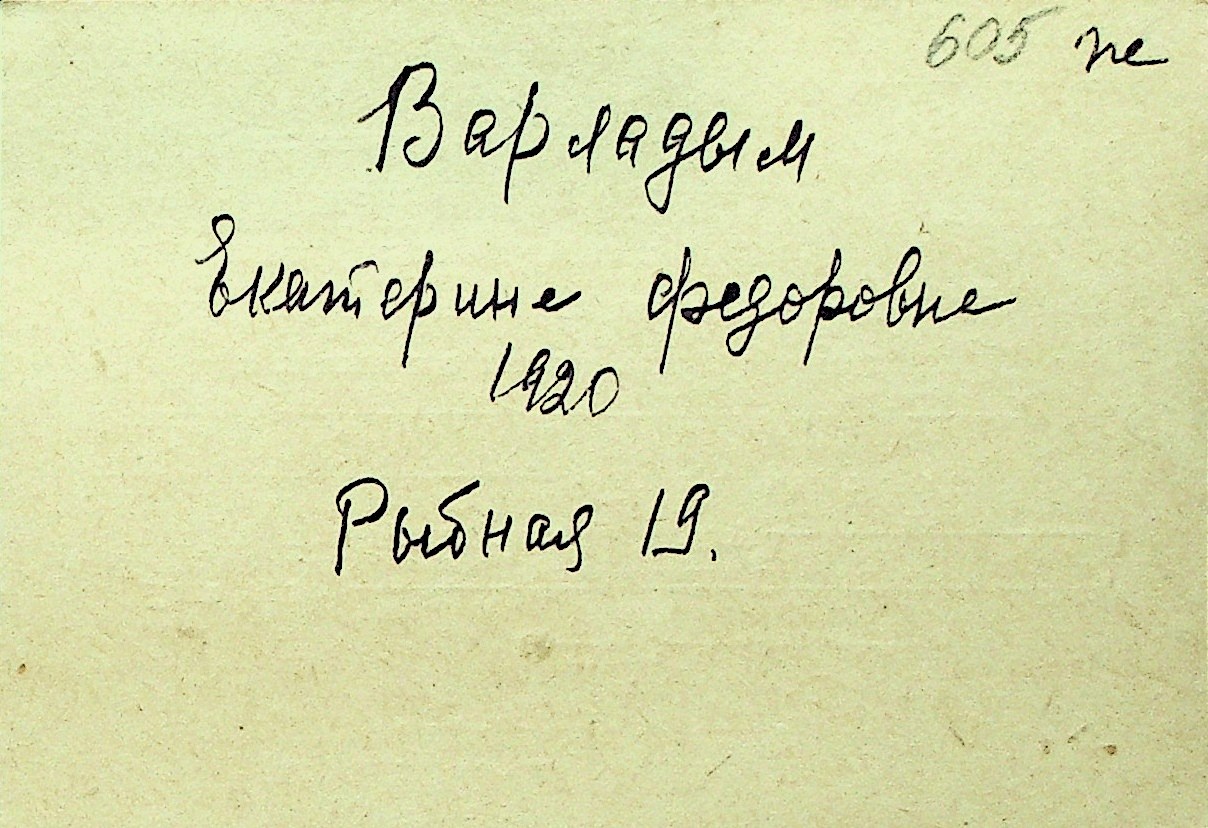 605 пе
Варладым
Екатерине Федоровне
1920
Рыбная 19.